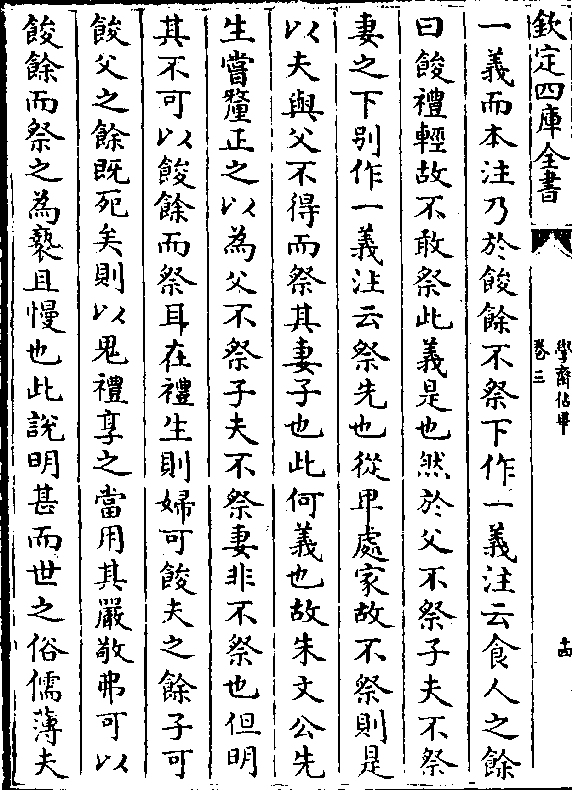 欽定四庫全書
學齋佔畢
卷三
十四
一義而本注乃於餕餘不祭下作一義注云食人之餘
曰餕禮輕故不敢祭此義是也然於父不祭子夫不祭
妻之下别作一義注云祭先也從卑處家故不祭則是
以夫與父不得而祭其妻子也此何義也故朱文公先
生嘗釐正之以為父不祭子夫不祭妻非不祭也但明
其不可以餕餘而祭耳在禮生則婦可餕夫之餘子可
餕父之餘既死矣則以鬼禮享之當用其嚴敬弗可以
餕餘而祭之為褻且慢也此説明甚而世之俗儒薄夫